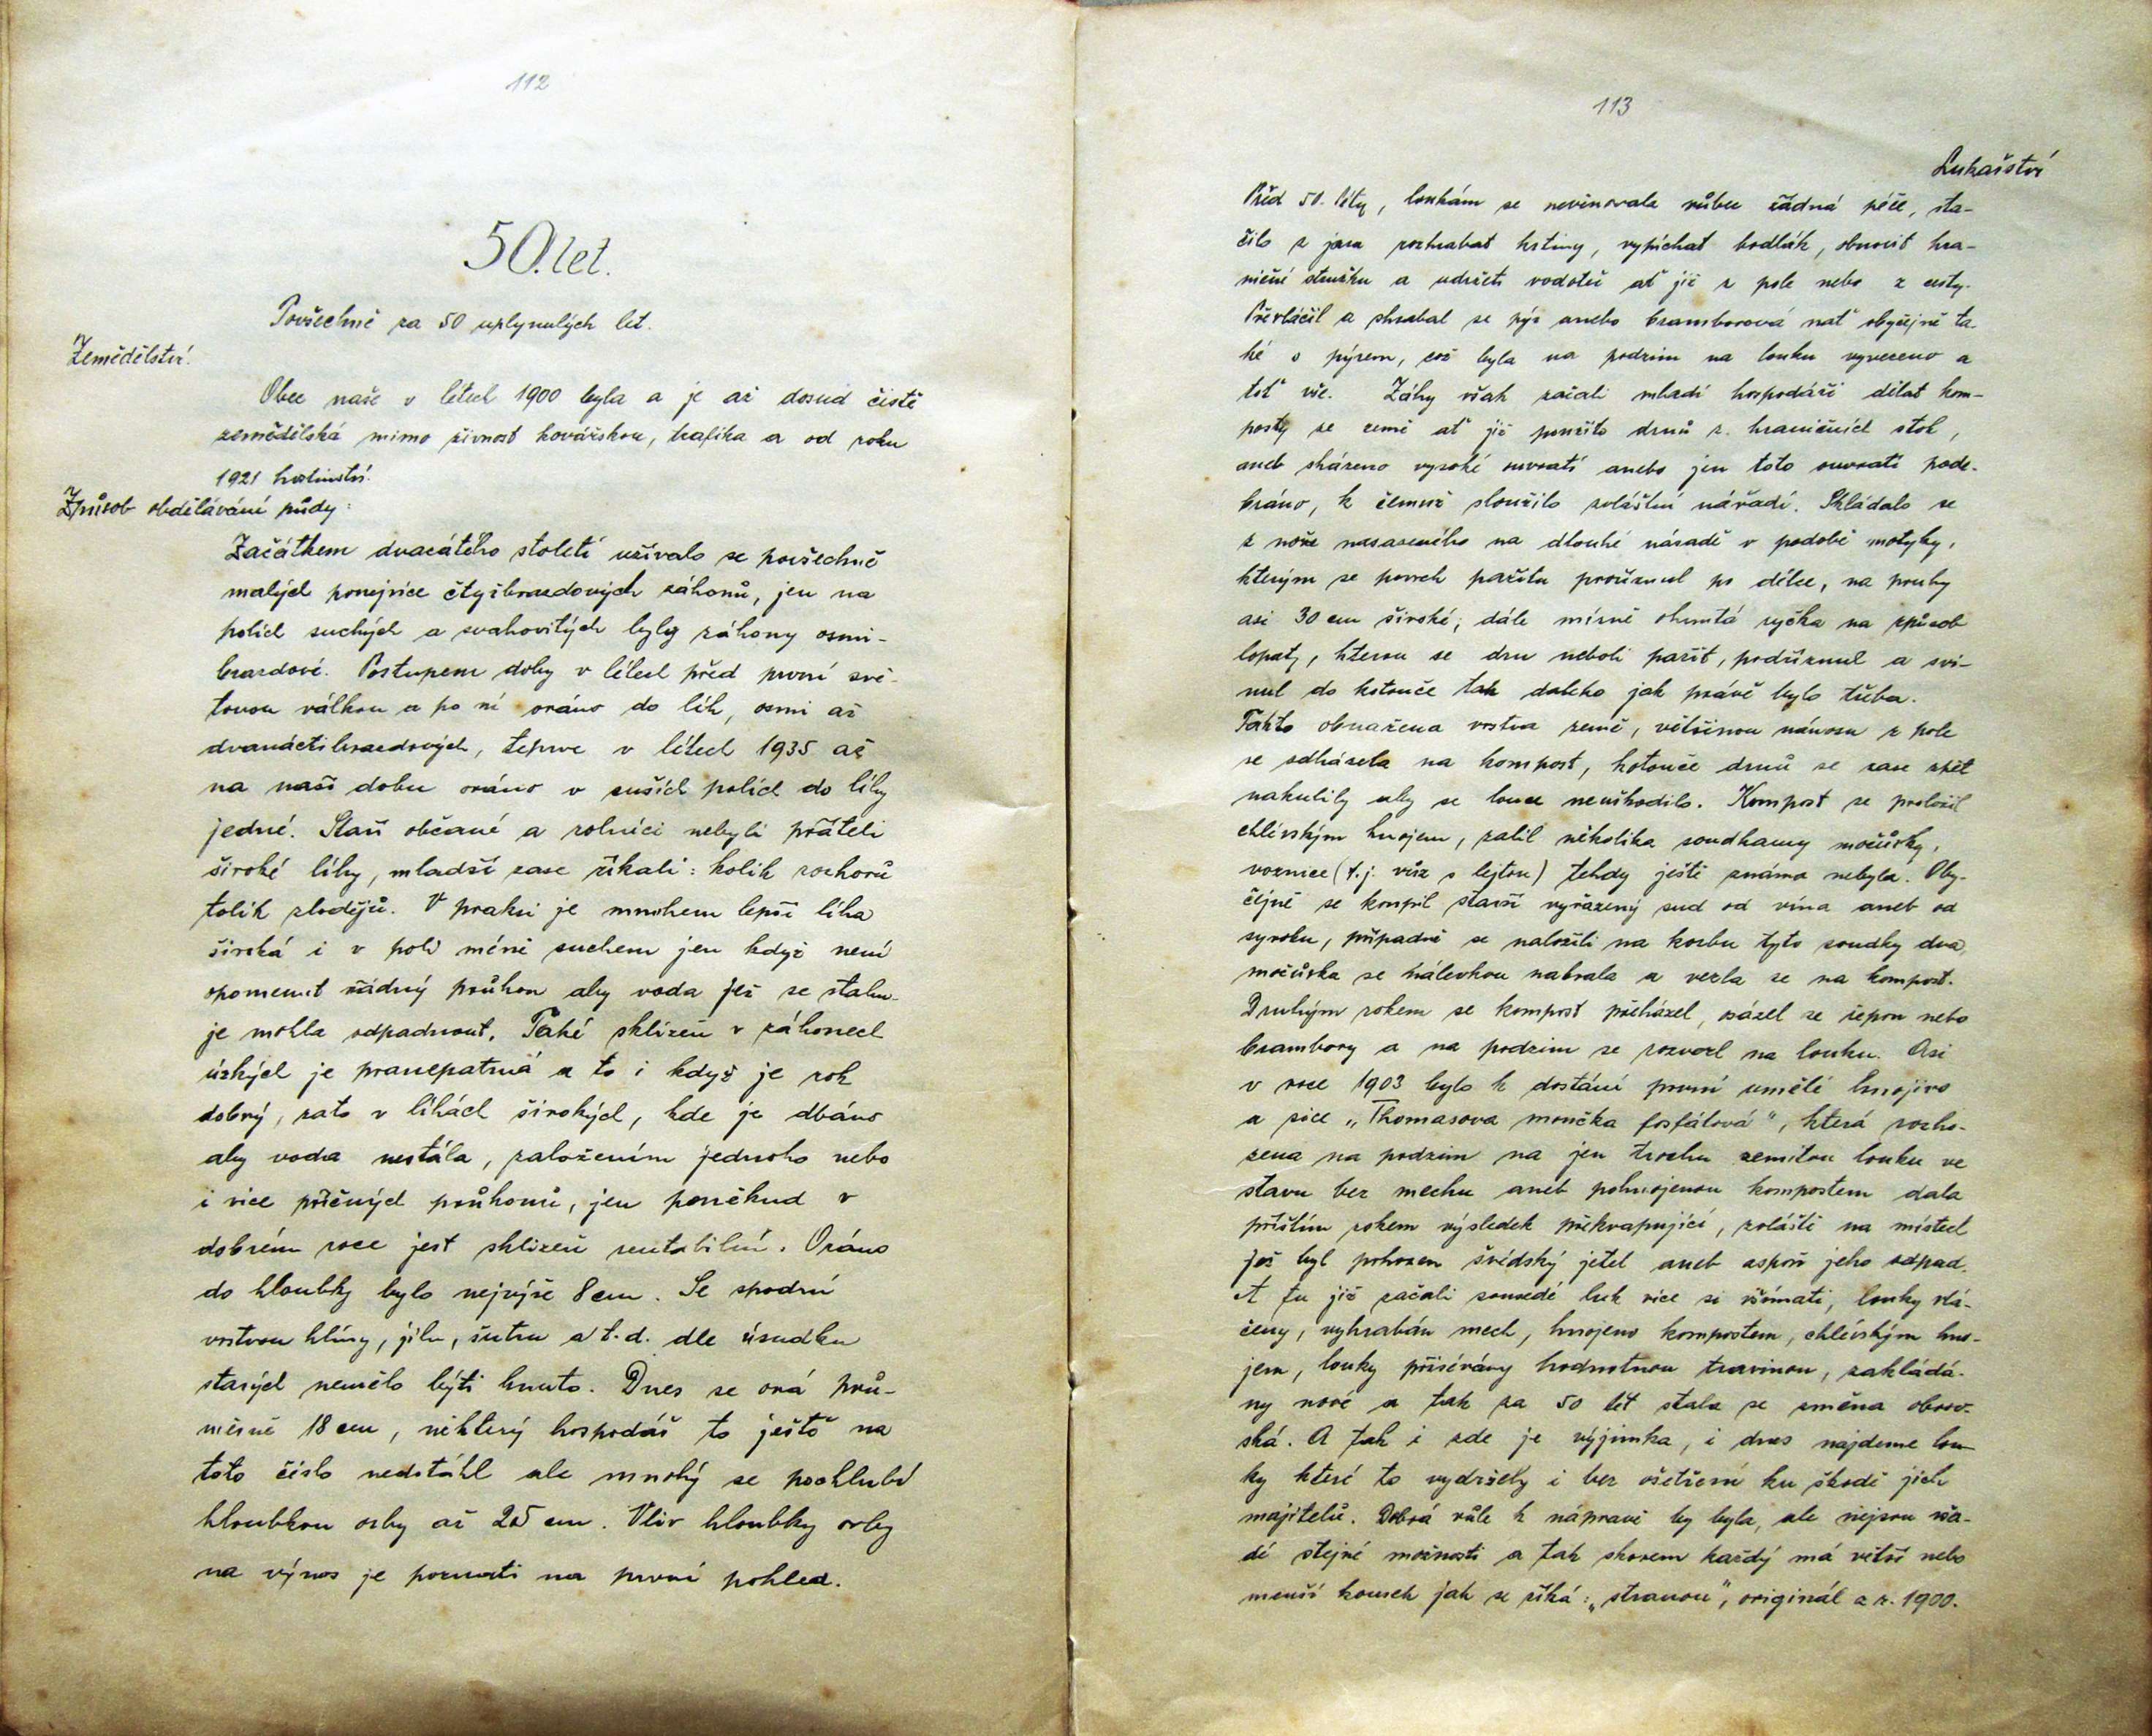 112
50. let.
Povšechně za 50 uplynulých let.
Zemědělství.
Obec naše v létech 1900 byla a je až dosud čistě
zemědělská mimo živnost kovářskou, trafika a od roku
1921 hostinství.
Způsob obdělávání půdy:
Začátkem dvacátého století užívalo se povšechně
malých ponejvíce čtyřbrazdových záhonů, jen na
polích suchých a svahovitých byly záhony osmi-
brazdové. Postupem doby v létech před první svě-
tovou válkou a po ní oráno do líh, osmi až
dvanáctibrazdových, teprve v létech 1935 až
na naši dobu oráno v sušších polích do líhy
jedné. Staří občané a rolníci nebyli přáteli
široké líhy, mladší zase říkali: kolik rozhorů
tolik zlodějů. V praksi je mnohem lepší líha
široká i v poli méně suchem jen když není
opomenut žádný průhon aby voda jež se stahu-
je mohla odpadnout. Také sklizeň v záhonech
úzkých je pranepatrná a to i když je rok
dobrý, zato v líhách širokých, kde je dbáno
aby voda nestála, založením jednoho nebo
i více příčných průhonů, jen poněkud v
dobrém roce jest sklizeň rentabilní. Oráno
do hloubky bylo nejvýše 8 cm. Se spodní
vrstvou hlíny, jílu, šutru a t.d. dle úsudku
starých nemělo býti hnuto. Dnes se orá prů-
měrně 18 cm, některý hospodář to ještě na
toto číslo nedotáhl ale mnohý se pochlubí
hloubkou orby až 25 cm. Vliv hloubky orby
na výnos je poznati na první pohled.
113
Lukařství
Před 50. léty, loukám se nevěnovala vůbec žádná péče, sta-
čilo z jara rozhrabat krtiny, vypíchat bodlák, obnovit hra-
niční stružku a udržeti vodoteč ať již z pole nebo z cesty.
Převláčil a shrabal se pýr anebo bramborová nať obyčejně ta-
ké s pýrem, což byla na podzim na louku vyvezeno a
toť vše. Záhy však začali mladí hospodáři dělat kom-
posty ze země ať již použito drnů z hraničních stok,
aneb skázeno vysoké souvratí anebo jen toto souvratí pode-
bráno, k čemuž sloužilo zvláštní nářadí. Skládalo se
z nože nasazeného na dlouhé násadě v podobě motyky,
kterým se povrch pažitu prořiznul po délce, na pruhy
asi 30 cm široké; dále mírně ohnutá ryčka na způsob
lopaty, kterou se drn neboli pažit, podřiznul a svi-
nul do kotouče tak daleko jak právě bylo třeba.
Takto obnažena vrstva země, většinou nánosu z pole
se odházela na kompost, kotouče drnů se zase zpět
nakulily aby se louce neuškodilo. Kompost se proložil
chlévským hnojem, zalil několika soudkamy močůvky,
voznice (t.j. vůz s lejtou) tehdy ještě známa nebyla. Oby-
čejně se koupil starší vyřazený sud od vína aneb od
syroku, případně se naložili na korbu tyto soudky dva,
močůvka se nálevkou nabrala a vezla se na kompost.
Druhým rokem se kompost přeházel, osázel se řepou nebo
brambory a na podzim se rozvozl na louku. Asi
v roce 1903 bylo k dostání první umělé hnojivo
a sice „Thomasova moučka fosfátová", která rozho-
zena na podzim na jen trochu zemitou louku ve
stavu bez mechu aneb pohnojenou kompostem dala
příštím rokem výsledek překvapující, zvláště na místech
jež byl pohozen švédský jetel aneb aspoň jeho odpad.
A tu již začali sousedé luk více si všímati, louky vlá-
čeny, vyhrabán mech, hnojeno kompostem, chlévským hno-
jem, louky přisévány hodnotnou travinou, zakládá-
ny nové a tak za 50 lét stala se změna obrov-
ská. A tak i zde je výjimka, i dnes najdeme lou-
ky které to vydržely i bez ošetření ku škodě jich
majitelů. Dobrá vůle k nápravě by byla, ale nejsou vša-
dé stejné možnosti a tak skorem každý má větší nebo
menší kousek jak se říká: „stranou", originál z r. 1900.